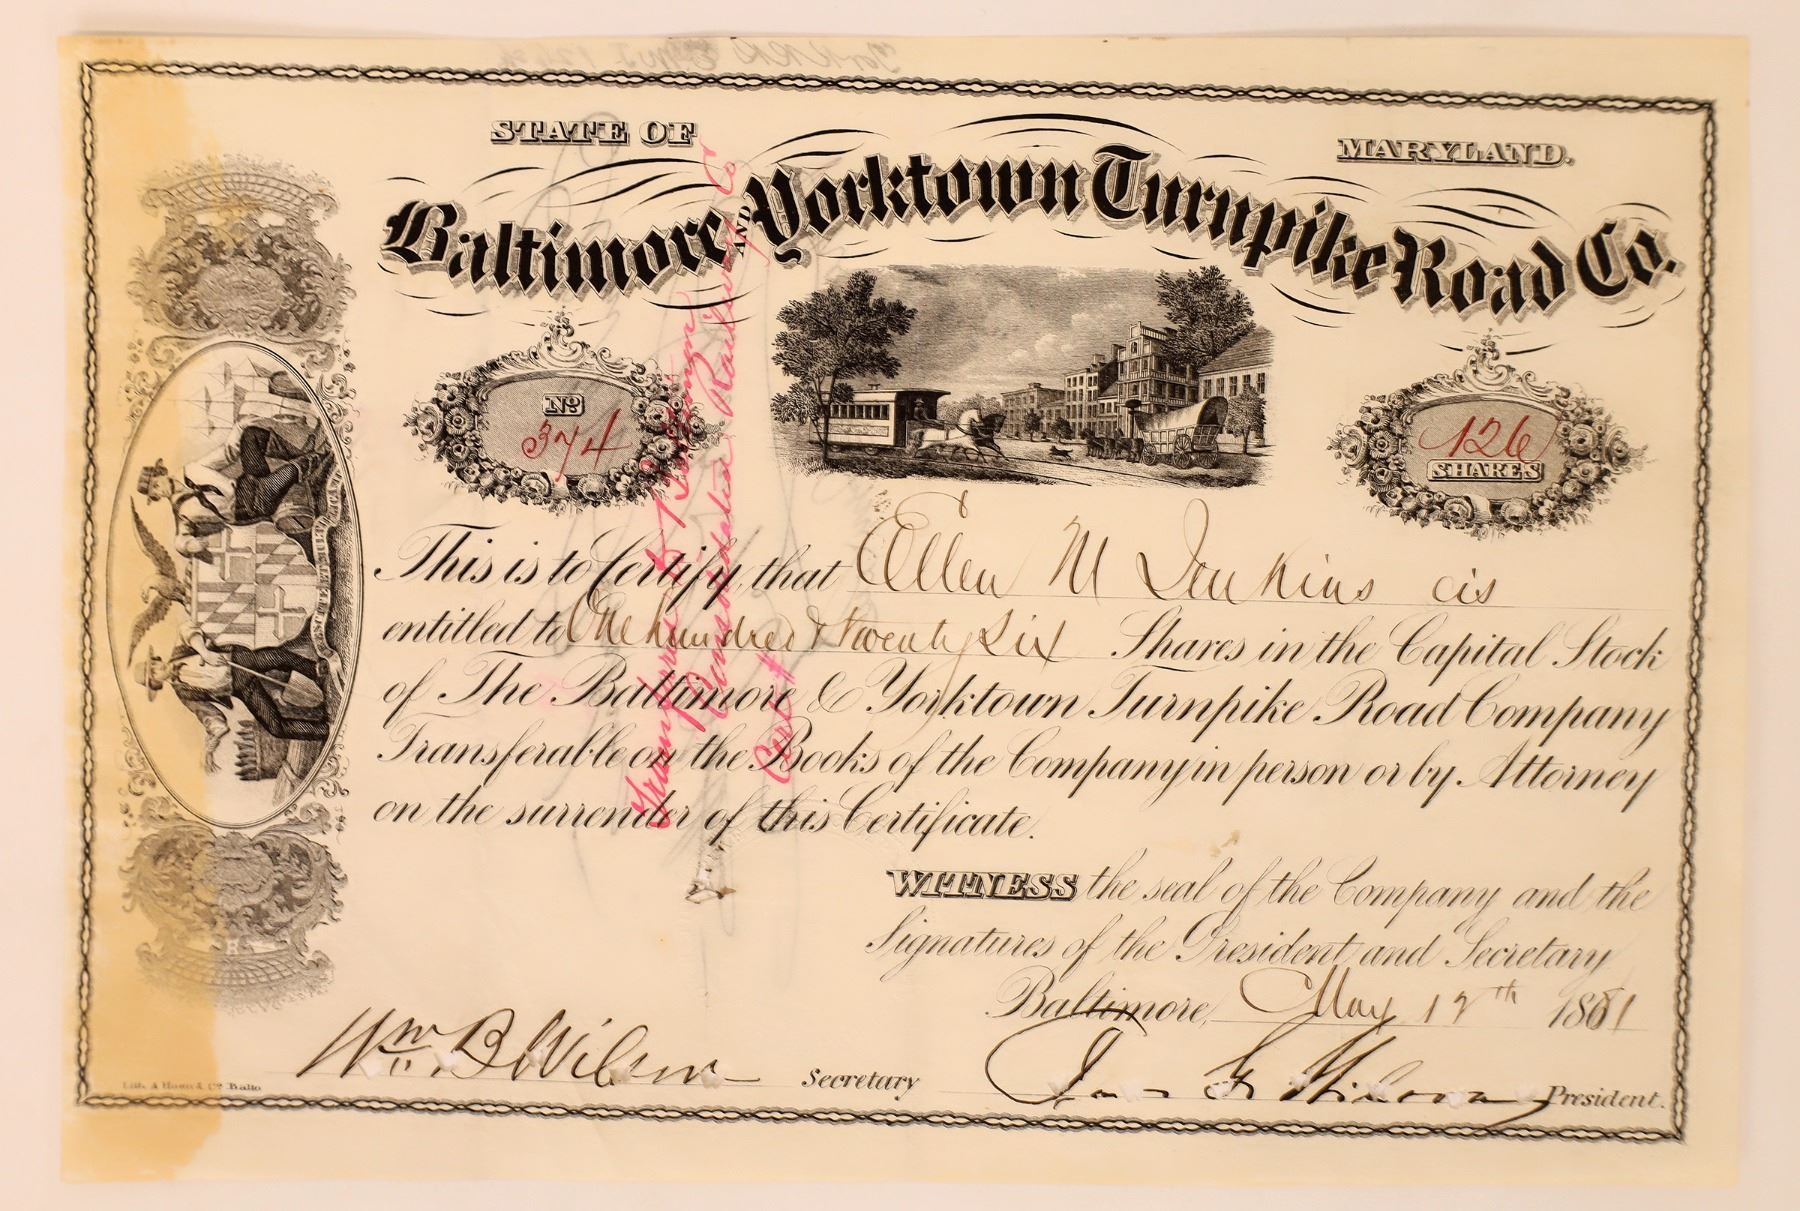 STATE OF MARYLAND.
Baltimore AND Yorktown Turnpike Road Co.
No 374
126 SHARES
This is to Certify, that Ellen M Jenkins is
entitled to One hundred & twenty six Shares in the Capital Stock
of The Baltimore & Yorktown Turnpike Road Company
Transferable on the Books of the Company in person or by Attorney
on the surrender of this Certificate.
WITNESS the seal of the Company and the
Signatures of the President and Secretary
Baltimore, May 12th 1881
Wm B Wilson Secretary
President.
Lith. A Hoen & Co. Balto
Consolidated Railway Co